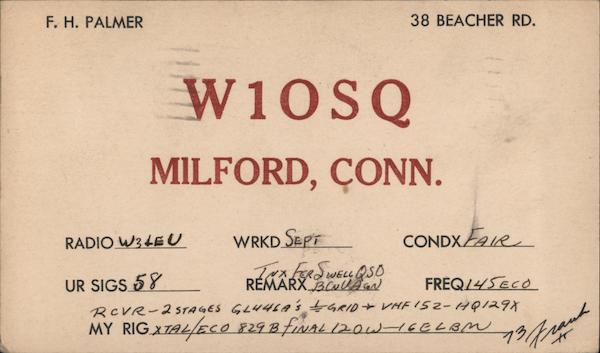 F. H. PALMER 38 BEACHER RD.
W1OSQ
MILFORD, CONN.
RADIO W3LEU WRKD SEPT CONDX FAIR
TNX FER SWELL QSO
UR SIGS 58 REMARX BCNU AGN FREQ 145 ECO
RCVR-2 STAGES GL446A's GRID VHF 152-HQ129X
MY RIG XTAL/ECO 829B FINAL 120W-16ELBM 73 Frank